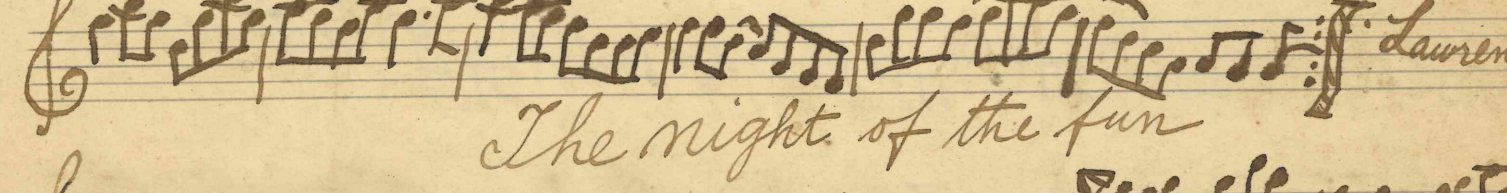 Lawren
The night of the fun